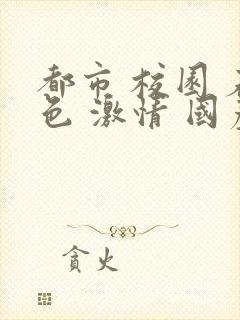 都市 校園
色 激情 國
貪火